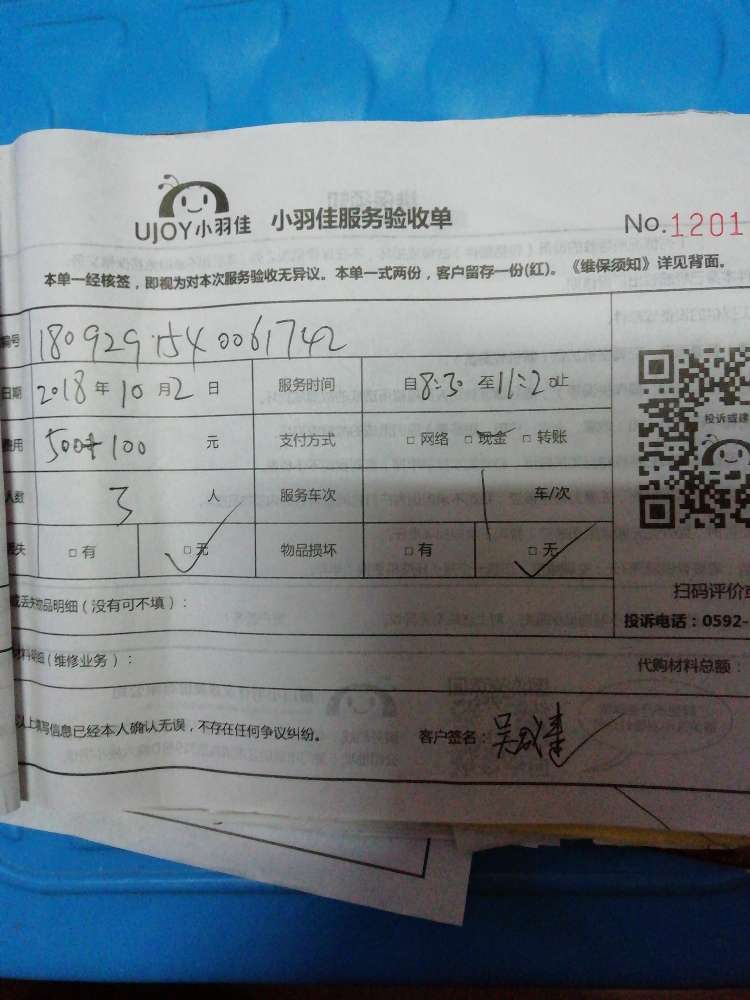 UJOY小羽佳 小羽佳服务验收单 No.1201
本单一经核签，即视为对本次服务验收无异议。本单一式两份，客户留存一份(红)。《维保须知》详见背面。
编号 1809291540061742
日期 2018年10月2日 服务时间 自8:30至11:20止
费用 500+100 元 支付方式 □网络 □现金 □转账
投诉或建
人数 3 人 服务车次 1 车/次
失 □有 □无 物品损坏 □有 □无
扫码评价或
或丢失物品明细（没有可不填）：
投诉电话：0592-
材料明细（维修业务）：
代购材料总额：
以上填写信息已经本人确认无误，不存在任何争议纠纷。 客户签名：吴